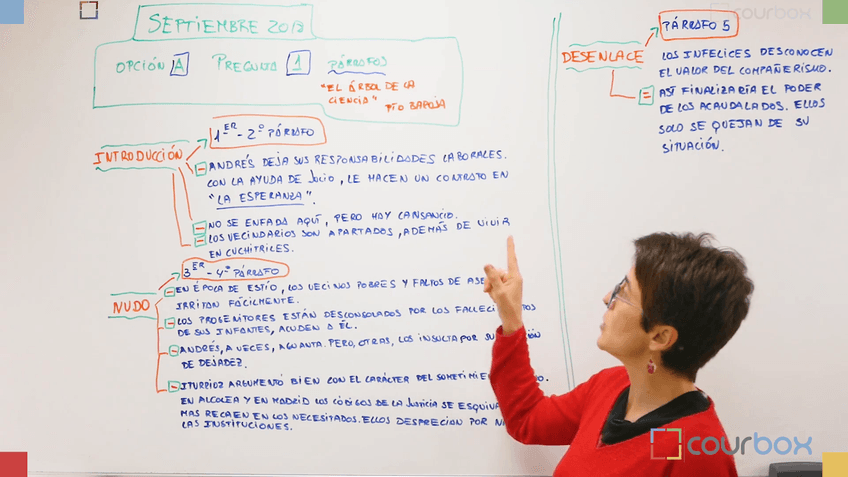 SEPTIEMBRE 2013
OPCIÓN A PREGUNTA 1 PÁRRAFOS
"EL ÁRBOL DE LA
CIENCIA" PÍO BAROJA
INTRODUCCIÓN
1ER - 2º PÁRRAFO
ANDRÉS DEJA SUS RESPONSABILIDADES LABORALES.
CON LA AYUDA DE JULIO, LE HACEN UN CONTRATO EN
"LA ESPERANZA".
NO SE ENFADA AQUÍ, PERO HAY CANSANCIO.
LOS VECINDARIOS SON APARTADOS, ADEMÁS DE VIVIR
EN CUCHITRILES.
NUDO
3ER - 4º PÁRRAFO
EN ÉPOCA DE ESTÍO, LOS VECINOS POBRES Y FALTOS DE
IRRITAN FÁCILMENTE.
LOS PROGENITORES ESTÁN DESCONSOLADOS POR LOS
DE SUS INFANTES, ACUDEN A ÉL.
ANDRÉS, A VECES, AGUANTA. PERO, OTRAS, LOS INSULTA POR
DE DEJADEZ.
ITURRIOZ ARGUMENTÓ BIEN CON EL CARÁCTER DEL
EN ALCOLEA Y EN MADRID LOS CÓDIGOS DE LA JUSTICIA SE
MAS RECAEN EN LOS NECESITADOS. ELLOS DESPRECIAN POR
LAS INSTITUCIONES.
DESENLACE
PÁRRAFO 5
LOS INFELICES DESCONOCEN
EL VALOR DEL COMPAÑERISMO.
ASÍ FINALIZARÍA EL PODER
DE LOS ACAUDALADOS. ELLOS
SOLO SE QUEJAN DE SU
SITUACIÓN.
courbox
courbox